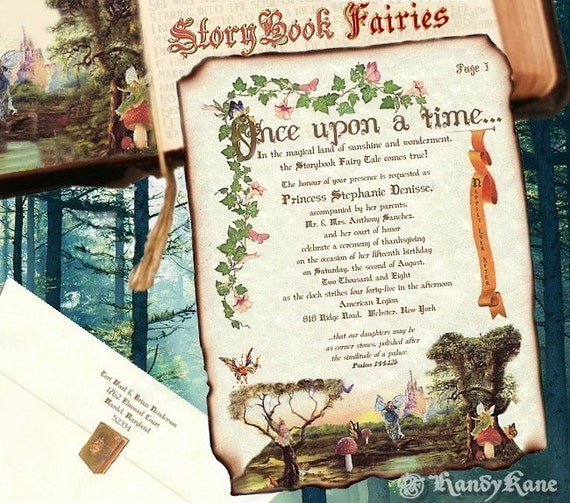 StoryBook Fairies
Page 1
Once upon a time...
In the magical land of sunshine and wonderment,
the Storybook Fairy Tale comes true!
The honour of your presence is requested as
Princess Stephanie Denisse,
accompanied by her parents,
Mr. & Mrs. Anthony Sanchez,
and her court of honor
celebrate a ceremony of thanksgiving
on the occasion of her fifteenth birthday
on Saturday, the second of August,
Two Thousand and Eight
as the clock strikes four forty-five in the afternoon
American Legion
818 Ridge Road, Webster, New York
...that our daughters may be
as corner stones, polished after
the similitude of a palace.
Psalms 144:12b
Happily Ever After
Tori Wood & Brian Henderson
1762 Elmwood Court
Maryland
52334
KandyKane